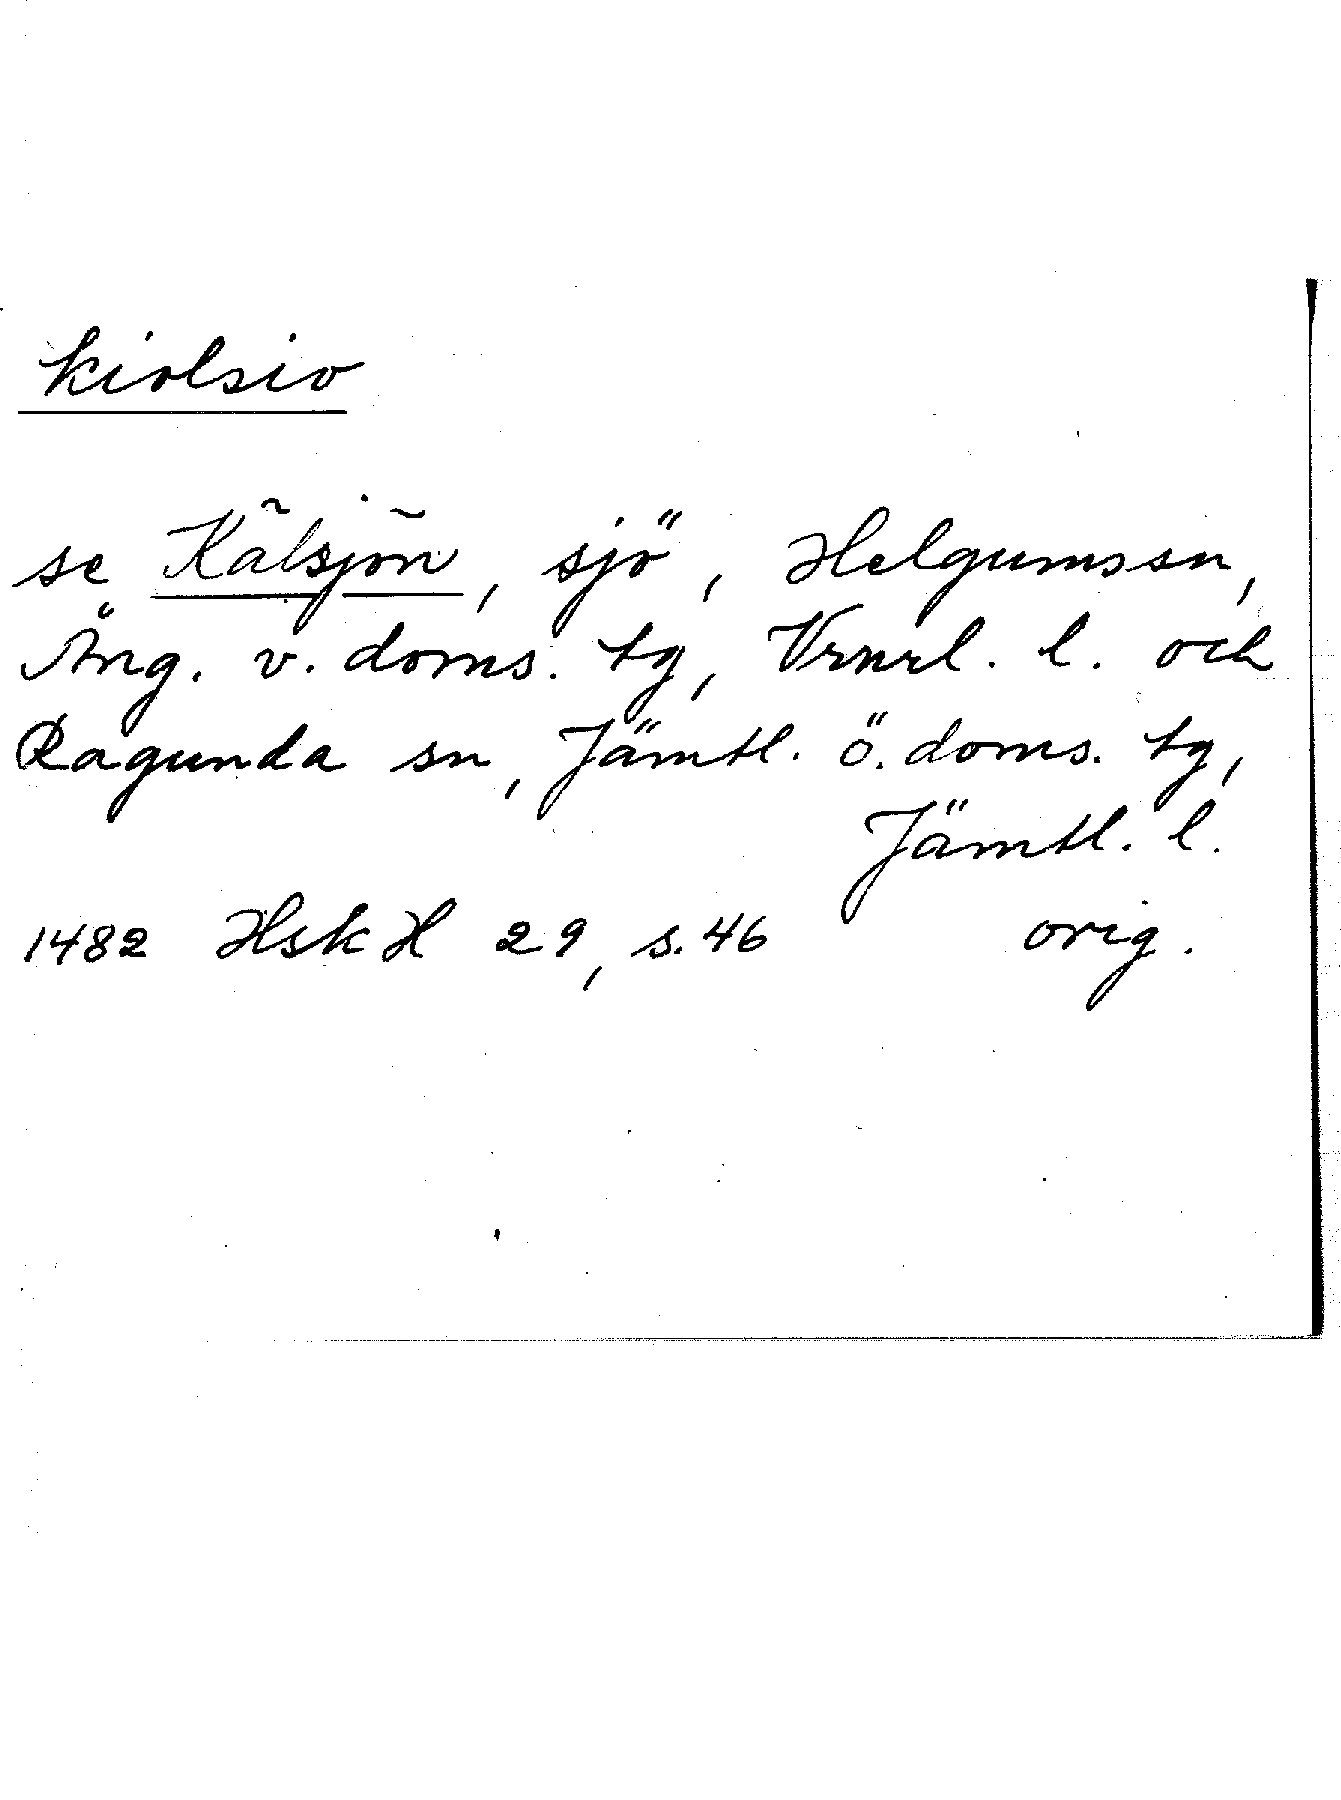 kiolsio
se Kälsjön, sjö, Helgums sn,
Äng. v. doms. tg, Vrnrl. l. och
Ragunda sn, Jämtl. ö. doms. tg,
Jämtl. l.
1482 HskH 29, s. 46 orig.